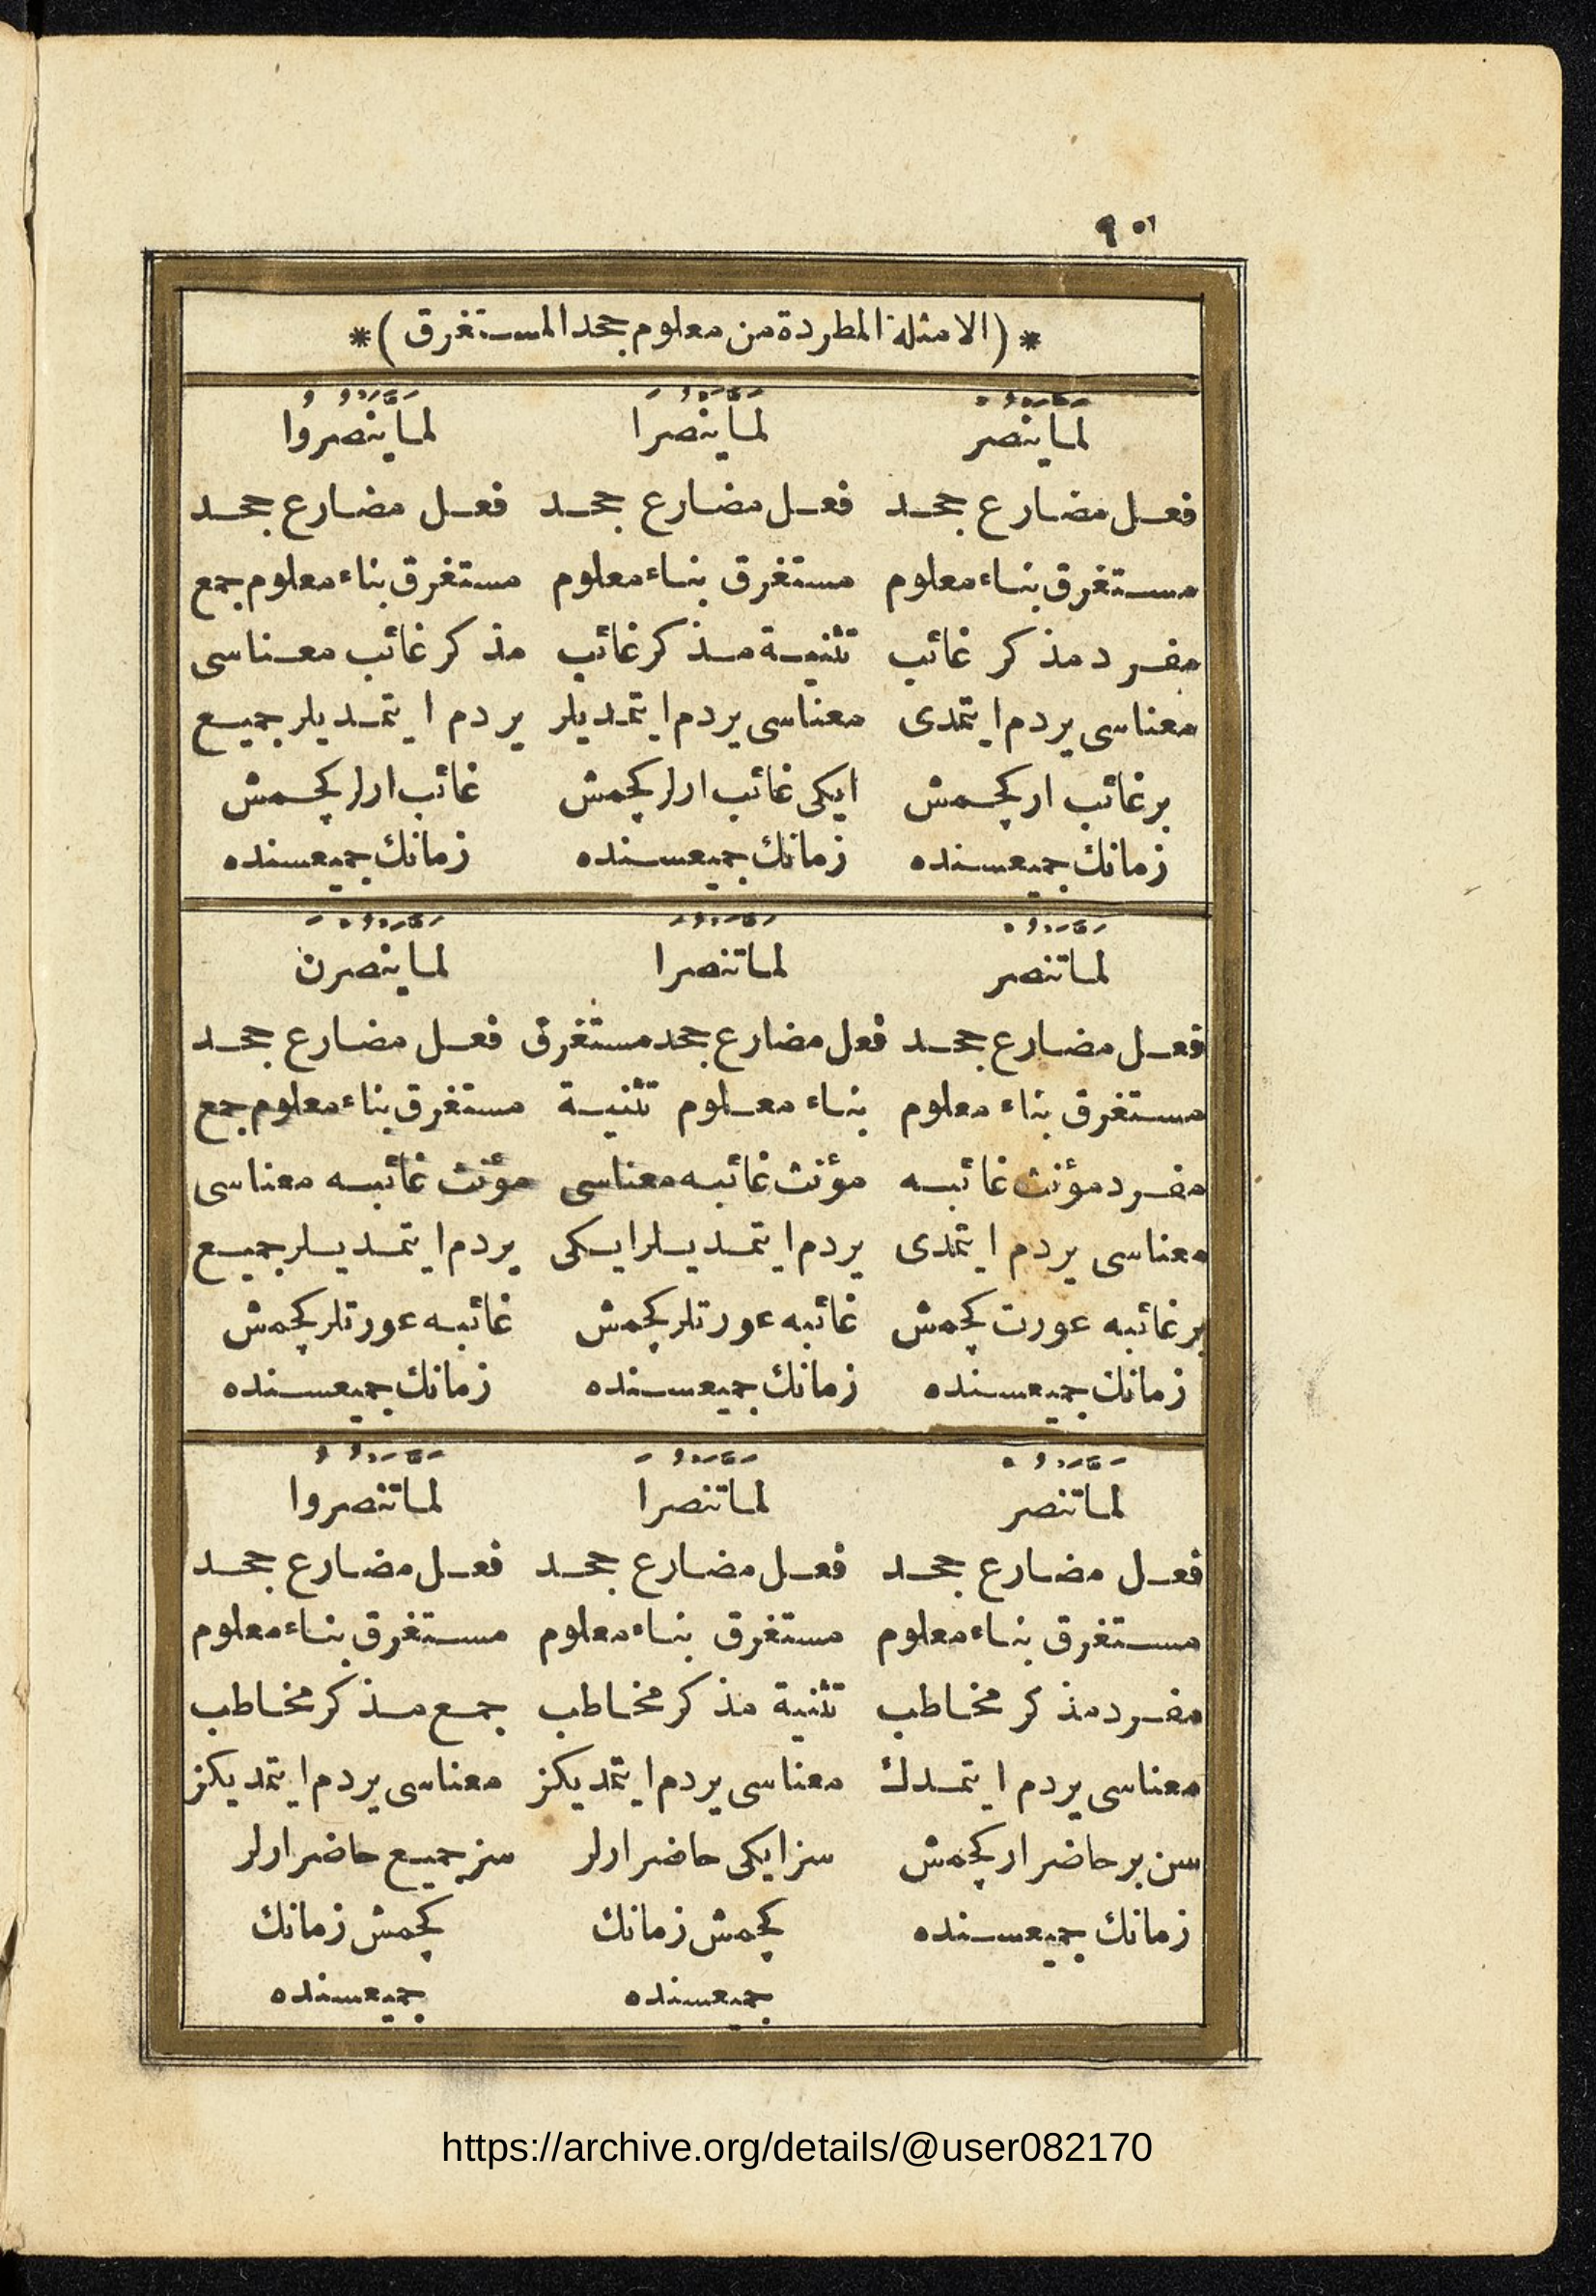 *(الامثلة المطردة من معلوم جحد المستغرق)*
لَمَّا يَنْصُرْ
فعل مضارع جحد
مستغرق بناء معلوم
مفرد مذكر غائب
معناسى يردم ايتمدى
بر غائب ار كچمش
زمانك جميعسنده
لَمَّا يَنْصُرَا
فعل مضارع جحد
مستغرق بناء معلوم
تثنية مذكر غائب
معناسى يردم ايتمديلر
ايكى غائب ارلر كچمش
زمانك جميعسنده
لَمَّا يَنْصُرُوا
فعل مضارع جحد
مستغرق بناء معلوم جمع
مذكر غائب معناسى
يردم ايتمديلر جميع
غائب ارلر كچمش
زمانك جميعسنده
لَمَّا تَنْصُرْ
فعل مضارع جحد
مستغرق بناء معلوم
مفرد مؤنث غائبه
معناسى يردم ايتمدى
بر غائبه عورت كچمش
زمانك جميعسنده
لَمَّا تَنْصُرَا
فعل مضارع جحد مستغرق
بناء معلوم تثنية
مؤنث غائبه معناسى
يردم ايتمديلر ايكى
غائبه عورتلر كچمش
زمانك جميعسنده
لَمَّا يَنْصُرْنَ
فعل مضارع جحد
مستغرق بناء معلوم جمع
مؤنث غائبه معناسى
يردم ايتمديلر جميع
غائبه عورتلر كچمش
زمانك جميعسنده
لَمَّا تَنْصُرْ
فعل مضارع جحد
مستغرق بناء معلوم
مفرد مذكر مخاطب
معناسى يردم ايتمدك
سن بر حاضر ار كچمش
زمانك جميعسنده
لَمَّا تَنْصُرَا
فعل مضارع جحد
مستغرق بناء معلوم
تثنية مذكر مخاطب
معناسى يردم ايتمديكز
سز ايكى حاضر ارلر
كچمش زمانك
جميعسنده
لَمَّا تَنْصُرُوا
فعل مضارع جحد
مستغرق بناء معلوم
جمع مذكر مخاطب
معناسى يردم ايتمديكز
سز جميع حاضر ارلر
كچمش زمانك
جميعسنده
https://archive.org/details/@user082170